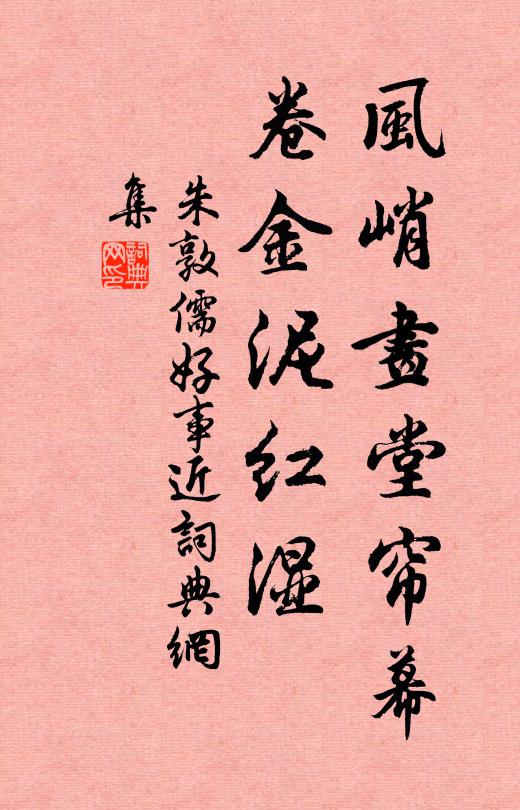 風峭畫堂帘幕
卷金泥红湿
朱敦儒好事近詞典網
集
詞典网印